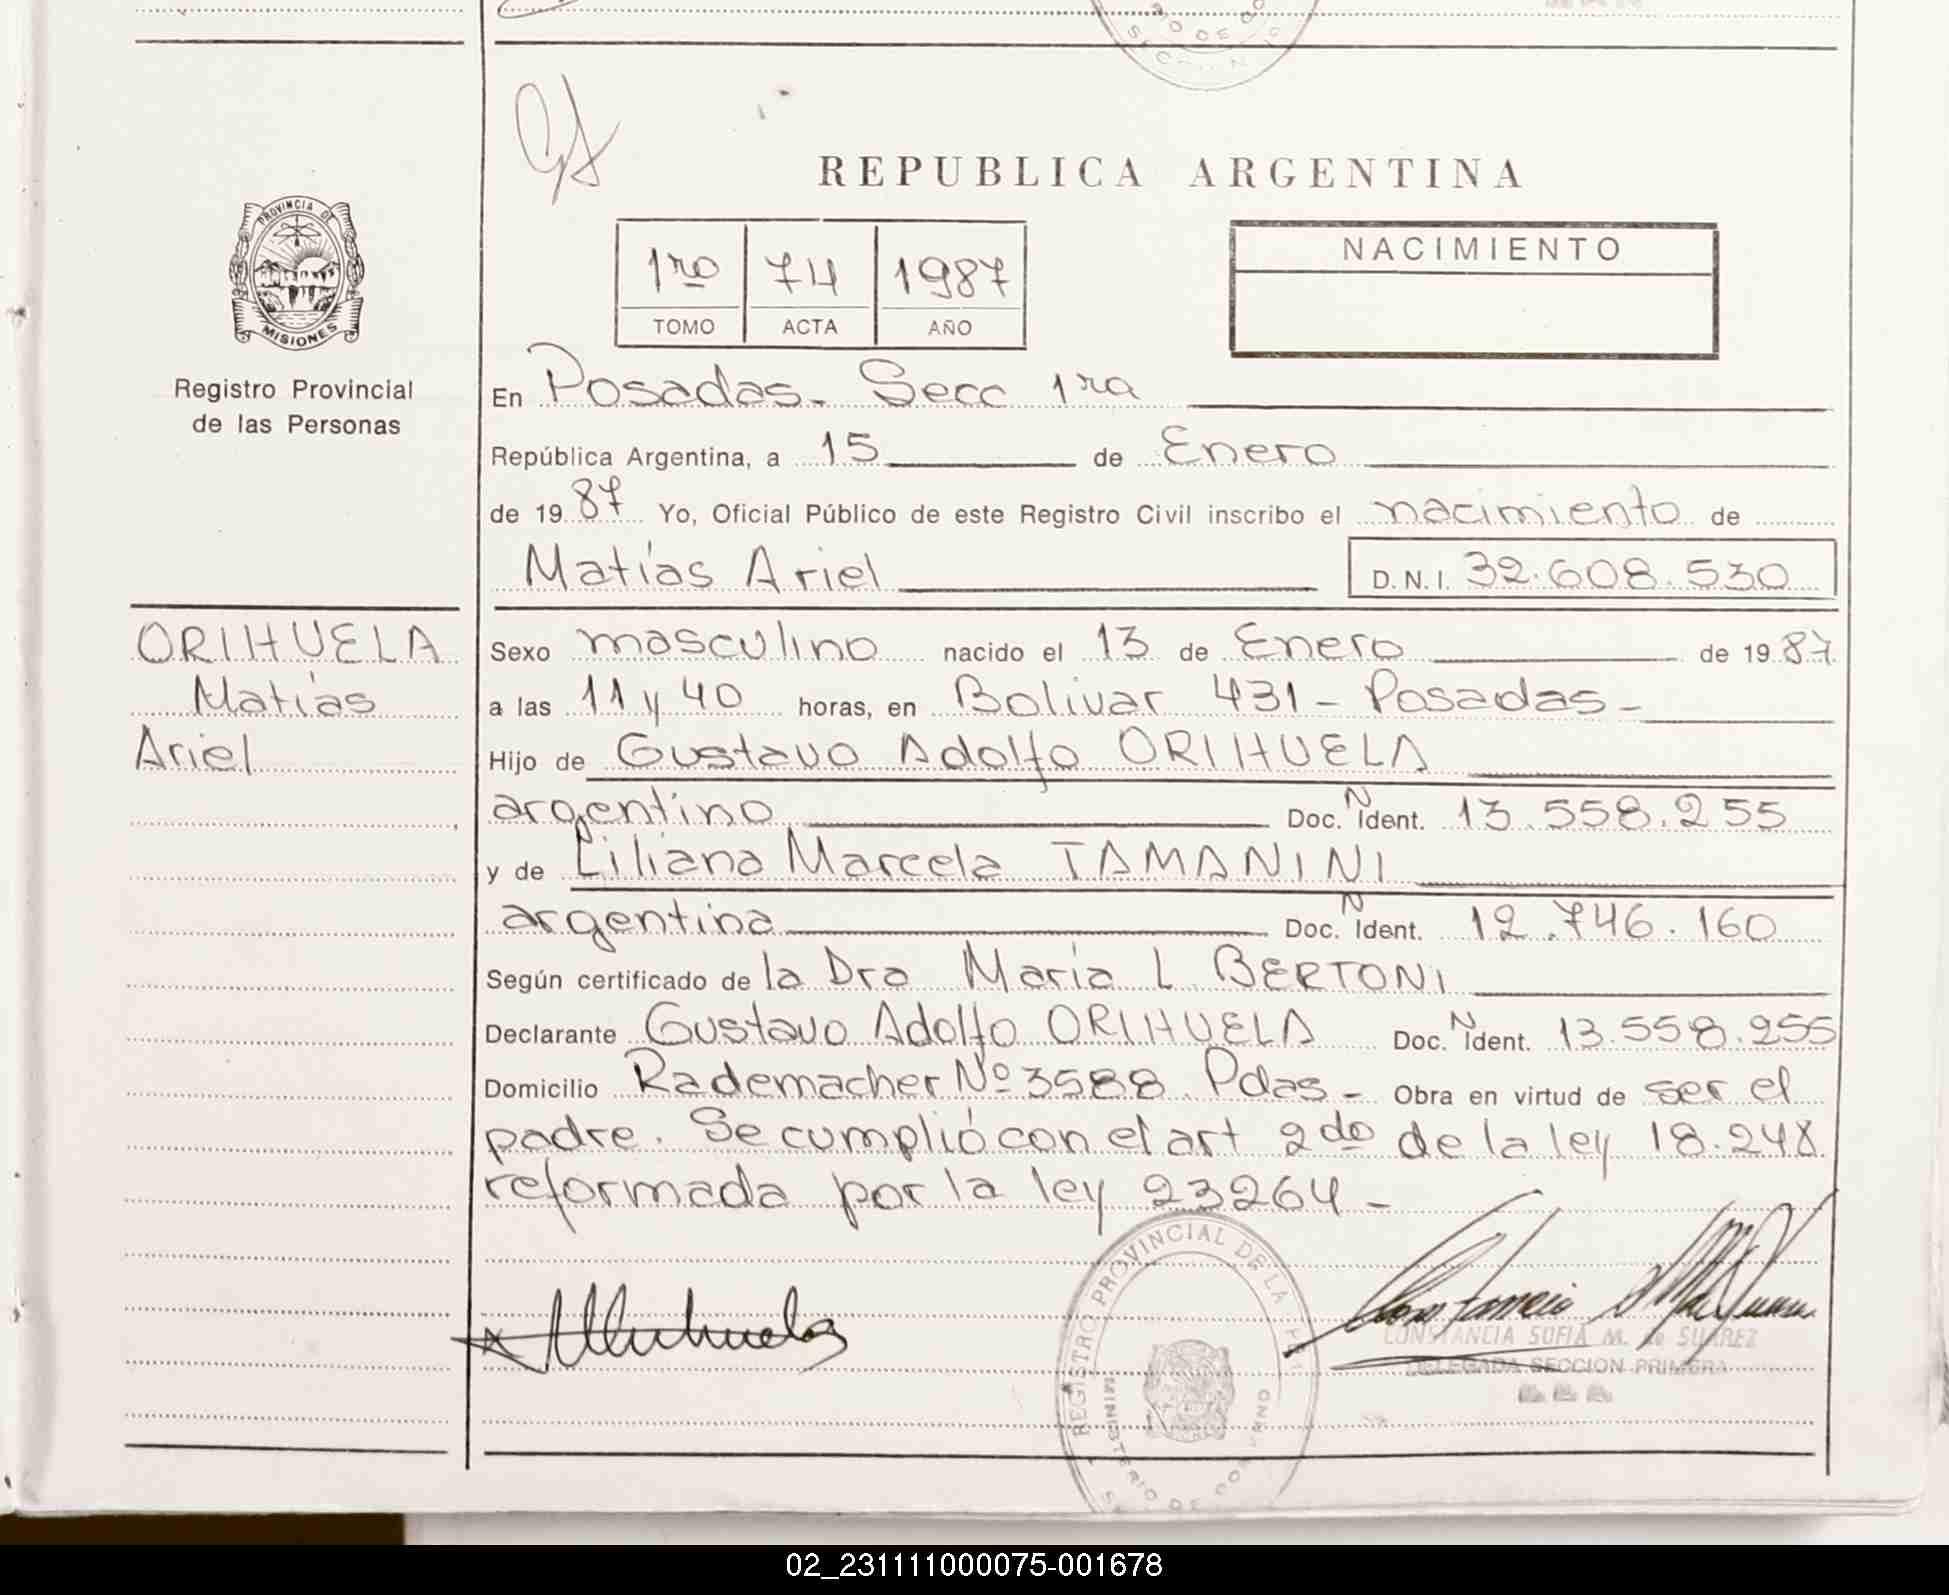 REPUBLICA ARGENTINA
PROVINCIA DE
MISIONES
Registro Provincial
de las Personas
1ro 74 1987
TOMO ACTA AÑO
NACIMIENTO
En Posadas. Secc 1ra
República Argentina, a 15 de Enero
de 1987 Yo, Oficial Público de este Registro Civil inscribo el nacimiento de
Matías Ariel D.N.I. 32.608.530
ORIHUELA
Matías
Ariel
Sexo masculino nacido el 13 de Enero de 1987
a las 11 y 40 horas, en Bolivar 431 - Posadas -
Hijo de Gustavo Adolfo ORIHUELA
argentino Doc. N Ident. 13.558.255
y de Liliana Marcela TAMANINI
argentina Doc. N Ident. 12.746.160
Según certificado de la Dra Maria L BERTONI
Declarante Gustavo Adolfo ORIHUELA Doc. N Ident. 13.558.255
Domicilio Rademacher Nº 3588 Pdas - Obra en virtud de ser el
padre. Se cumplió con el art 2do de la ley 18.248
reformada por la ley 23264 -
REGISTRO PROVINCIAL DE LA
MINISTERIO DE GOBIERNO
CONSTANCIA SOFIA M. de SUAREZ
DELEGADA SECCION PRIMERA
02_231111000075-001678